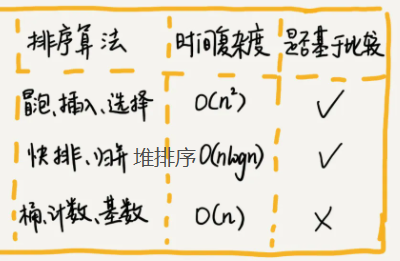 排序算法 时间复杂度 是否基于比较
冒泡、插入、选择 O(n²) ✓
快排、归并 堆排序 O(nlogn) ✓
桶、计数、基数 O(n) ×